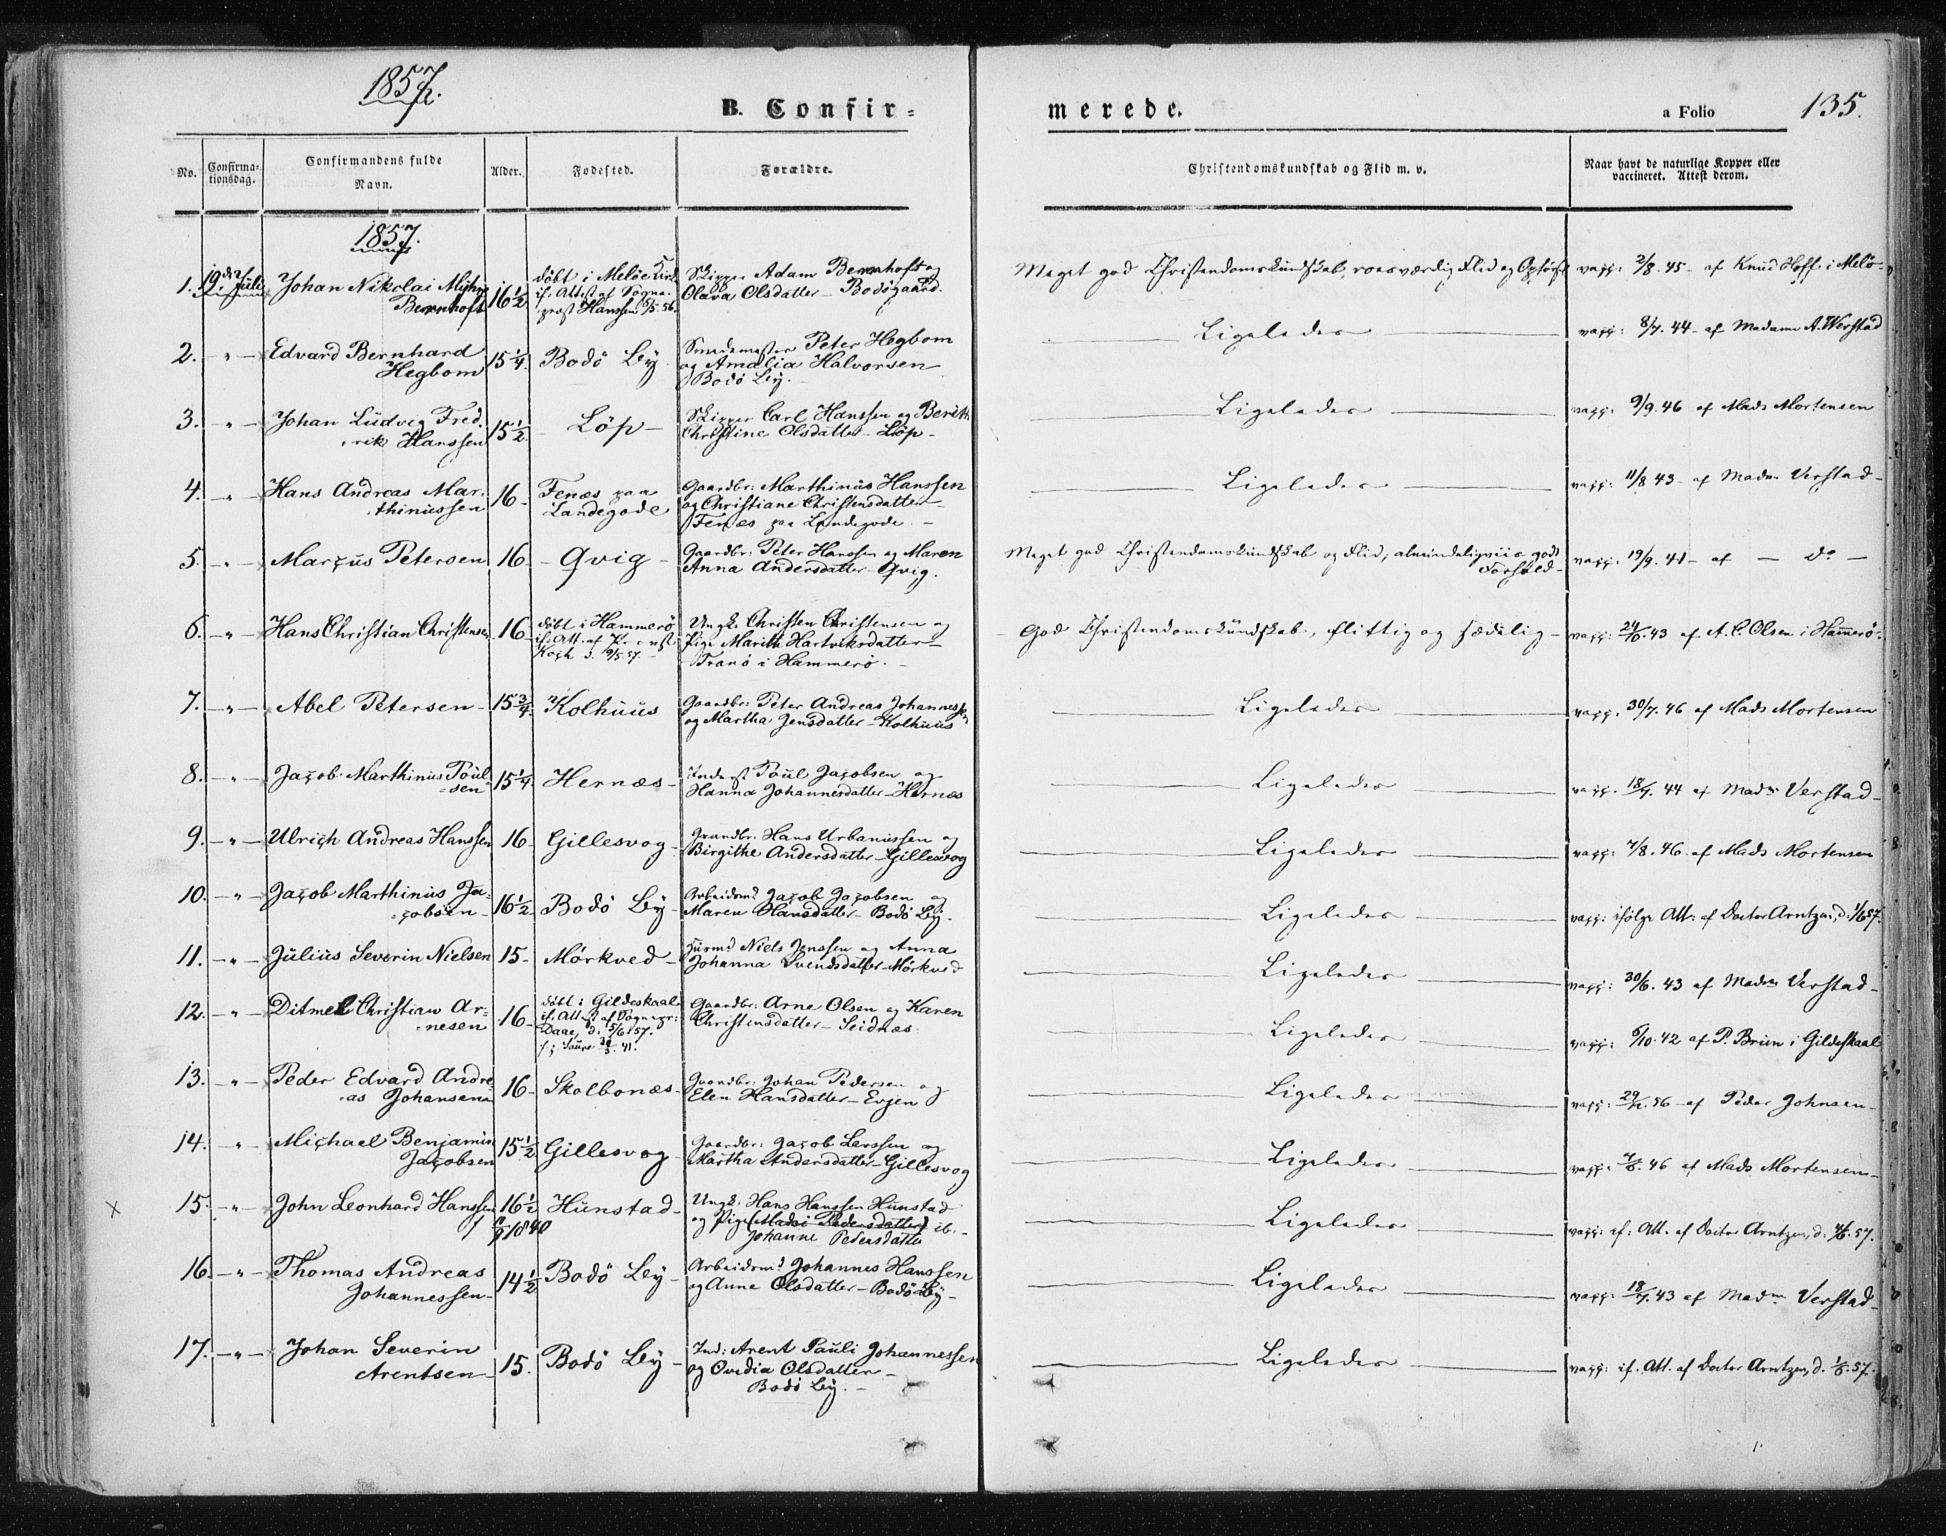 1857.
B. Confir-
merede.
a Folio 135.
No.
Confirma-
tionsdag.
Confirmandens fulde
Navn.
Alder.
Fødested.
Forældre.
Christendomskundskab og Flid m. v.
Naar havt de naturlige Kopper eller
vaccineret. Attest derom.
1857.
1. 19de Juli Johan Nikolai
Bernhoft 16 1/2
døbt i Meløe Kirke
if. Attest af Sogne-
præst Hanssen
Skipper Adam Bernhoft og
Olava Olsdatter - Bodøgaard.
Meget god Christendomskundskab, roesværdig Flid og Opførsel
vacc: 2/8. 45 - af Knud Hoff i Melö -
2. -"- Edvard Bernhard
Hegbom 15 1/4. Bodö By
Smedemester Peter Hegbom
og Amalia Halvorsen
Bodö By. -
Ligeledes
vacc: 8/7. 44 - af Madame A. Werstad
3. -"- Johan Ludvig Fred.
rik Hanssen 15 1/2 - Löp -
Skipper Carl Hanssen og Berith
Christine Olsdatter - Löp -
Ligeledes
vacc: 9/9. 46 af Mads Mortensen
4. -"- Hans Andreas Mar-
thinussen 16 - Fenæs paa
Landegode
Gaardbr: Marthinus Hanssen
og Christiane Christensdatter -
Fenæs paa Landegode. -
Ligeledes
vacc: 11/8 43 - af Madm Verstad -
5. -"- Marcus Petersen 16 - Qvig -
Gaardbr: Peter Hanssen og Maren
Anna Andersdatter - Qvig.
Meget god Christendomskundskab og Flid, almindeligviis godt
Forhold -
vacc: 19/9. 41 - af - do -
6. -"- Hans Christian Christensen 16 -
døbt i Hammerö
if. Att. af
Koch d. 19/5 57. -
Ungk. Christen Christensen og
Pige Marith Hartviksdatter -
Tranö i Hammerö. -
God Christendomskundskab, flittig og sædelig -
vacc: 43 af A. C. Olsen i Hammerö.
7. -"- Abel Petersen - 15 3/4. Kolhuus
Gaardbr: Peter Andreas Johannessen
og Martha Jensdatter - Kolhuus
Ligeledes
vacc. 30/7. 46 af Mads Mortensen
8. -"- Jacob Marthinus Poul-
sen 15 1/4. Hernæs -
Inderst Poul Jacobsen og
Hanna Johannesdatter - Hernæs
Ligeledes
vacc. 18/7. 44 af Madm Verstad -
9. -"- Ulrich Andreas Hanssen 16 - Gillesvog -
Gaardbr: Hans Urbanussen og
Birgithe Andersdatter - Gillesvog
Ligeledes
vacc: 7/8. 46 - af Mads Mortensen
10. -"- Jacob Marthinus Ja-
cobsen - 16 1/2 - Bodö By -
Arbeidsmd Jacob Jacobsen og
Maren Hansdatter - Bodö By -
Ligeledes
vacc: ifølge Att: af Doctor Arntzen, d. 1/6 57.
11. -"- Julius Severin Nielsen 15 - Mörkved -
Huusmd Niels Jenssen og Anna
Johanna Svendsdatter - Mörkved
Ligeledes
vacc: 30/6. 43 af Madm Verstad -
12. -"- Ditmel Christian Ar-
nesen 16 -
døbt i Gildeskaal
if. Att af Sognepr:
Daae, d. 5/6 57.
Gaardbr: Arne Olsen og Karen
Christensdatter - Seidnæs.
Ligeledes
vacc: 6/10. 42 af P. Bruun i Gildeskaal
13. -"- Peder Edvard Andre-
as Johansen 16 - Skolbonæs -
Gaardbr: Johan Pedersen og
Elen Hansdatter - Evjen
Ligeledes
vacc: 56 - af Peder Johnsen -
14. -"- Michael Benjamin
Jacobsen 15 1/2 Gillesvog -
Gaardbr: Jacob Larssen og
Martha Andersdatter - Gillesvog
Ligeledes
vacc: 7/8. 46 af Mads Mortensen -
x 15. -"- John Leonhard Hanssen 16 1/2 Hunstad -
1840
Ungk: Hans Hanssen Hunstad
og Pige Pedersdatter ib. -
Johanne Pedersdatter
Ligeledes
vacc: if: Att. af Doctor Arntzen, d: 57.
16. -"- Thomas Andreas
Johannessen - 14 1/2 Bodö By -
Arbeidsmd Johannes Hanssen
og Anne Olsdatter - Bodö By -
Ligeledes
vacc: 18/7. 43 af Madm Verstad -
17. -"- Johan Severin
Arentsen - 15. Bodö By -
Ind: Arent Pauli Johannessen
og Ovidia Olsdatter -
Bodö By. -
Ligeledes
vacc: if. Att. af Doctor Arntzen, d. 1/6. 57.